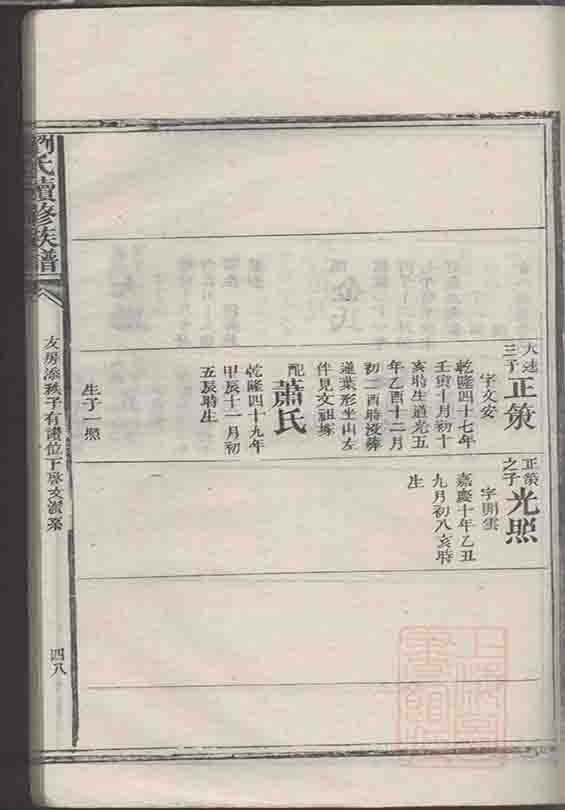 大建三子正策
字文安
乾隆四十七年
壬寅十月初十
亥時生道光五
年乙酉十二月
初二酉時沒葬
蓮葉形坐山左
伴見文祖墳
配蕭氏
乾隆四十九年
甲辰十一月初
五辰時生
生子一照
正策之子光照
字開雲
嘉慶十年乙丑
九月初八亥時
生
劉氏續修族譜
友房添秩子有讃位下
四八
上海圖書館藏